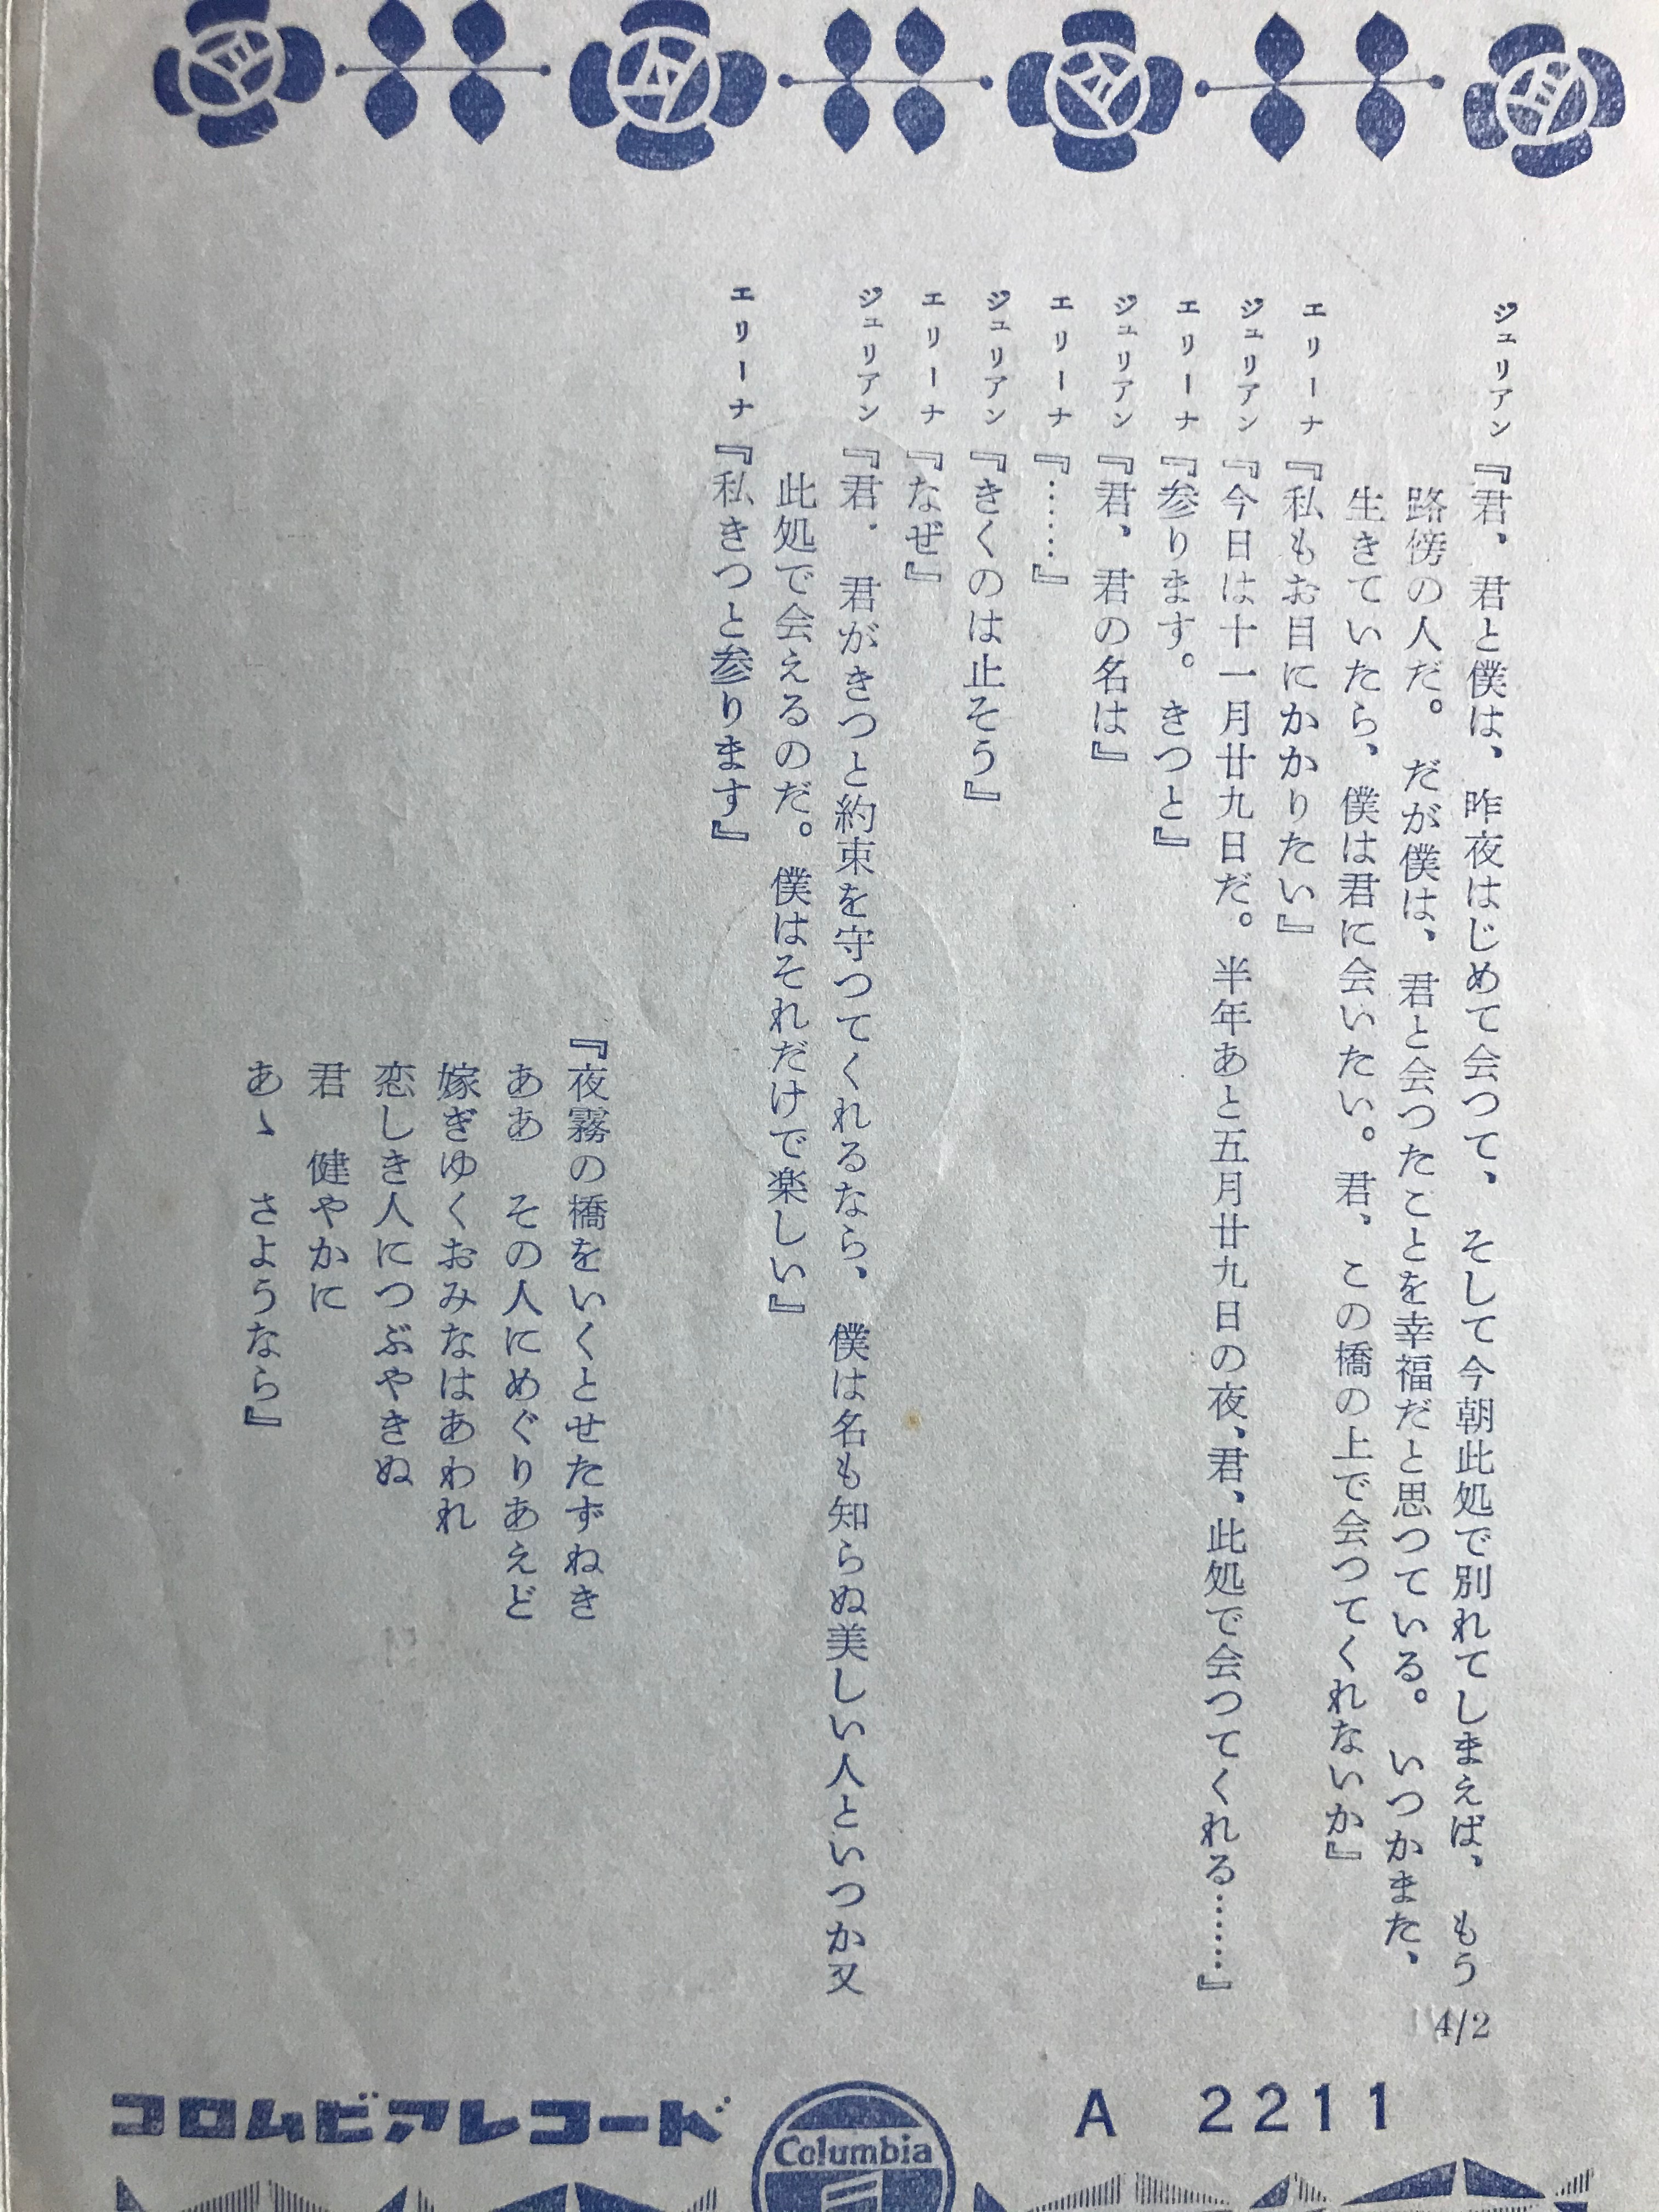 ジュリアン『君、君と僕は、昨夜はじめて会つて、そして今朝此処で別れてしまえば、もう
路傍の人だ。だが僕は、君と会つたことを幸福だと思つている。いつかまた、
生きていたら、僕は君に会いたい。君、この橋の上で会つてくれないか』
エリーナ『私もお目にかかりたい』
ジュリアン『今日は十一月廿九日だ。半年あと五月廿九日の夜、君、此処で会つてくれる……』
エリーナ『参ります。きつと』
ジュリアン『君、君の名は』
エリーナ『……』
ジュリアン『きくのは止そう』
エリーナ『なぜ』
ジュリアン『君．君がきつと約束を守つてくれるなら、僕は名も知らぬ美しい人といつか又
此処で会えるのだ。僕はそれだけで楽しい』
エリーナ『私きつと参ります』
『夜霧の橋をいくとせたずねき
ああ　その人にめぐりあえど
嫁ぎゆくおみなはあわれ
恋しき人につぶやきぬ
君　健やかに
あゝ　さようなら』
4/2
コロムビアレコード
Columbia
A 2211